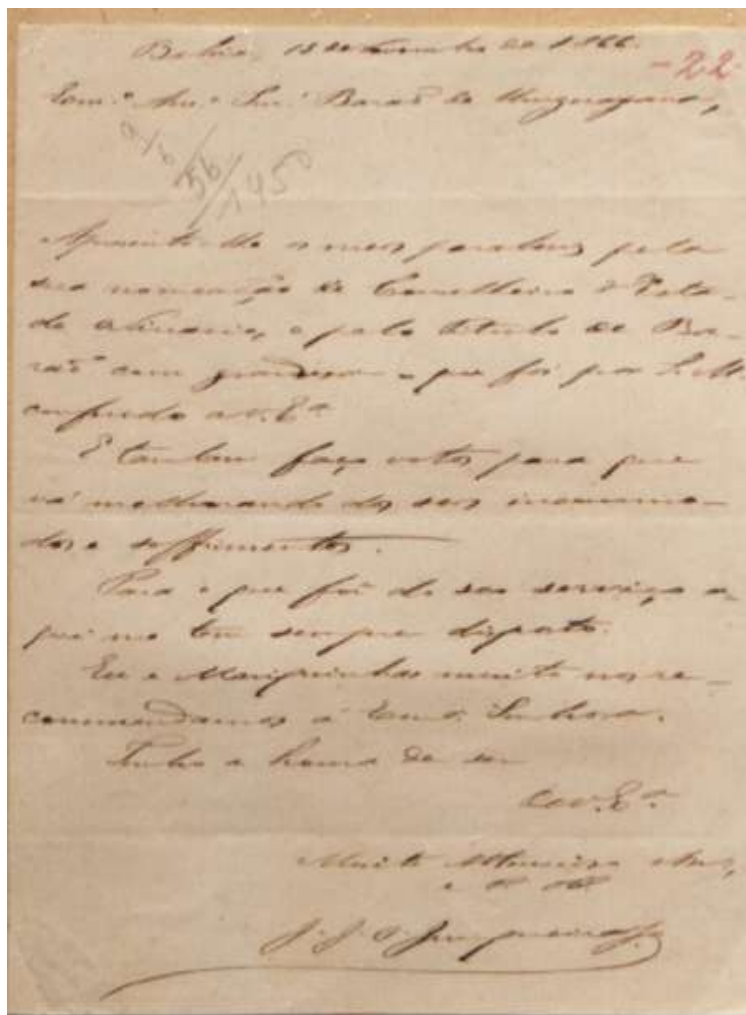 Bahia, 18 de de 1866.
-22-
Exm.º Am.º Snr. Barão de Uruguayana,
56/1950
Apresento-lhe os meos parabens pela
sua nomeação de Conselheiro d'Esta-
do ordinario, e pelo titulo de Ba-
rão com grandesa - que foi por S. M.
conferido a V. Ex.ª
E tambem faço votos para que
vá melhorando dos seos incommo-
dos e soffrimentos.
Para o que fôr de seo serviço a-
qui me tem sempre disposto.
Eu e Mariquinhas muito nos re-
commendamos á Exma. Senhora.
Tenho a honra de ser
de V. Ex.ª
Muito Attencioso Am.º
J. J. O. Junqueira Jr.